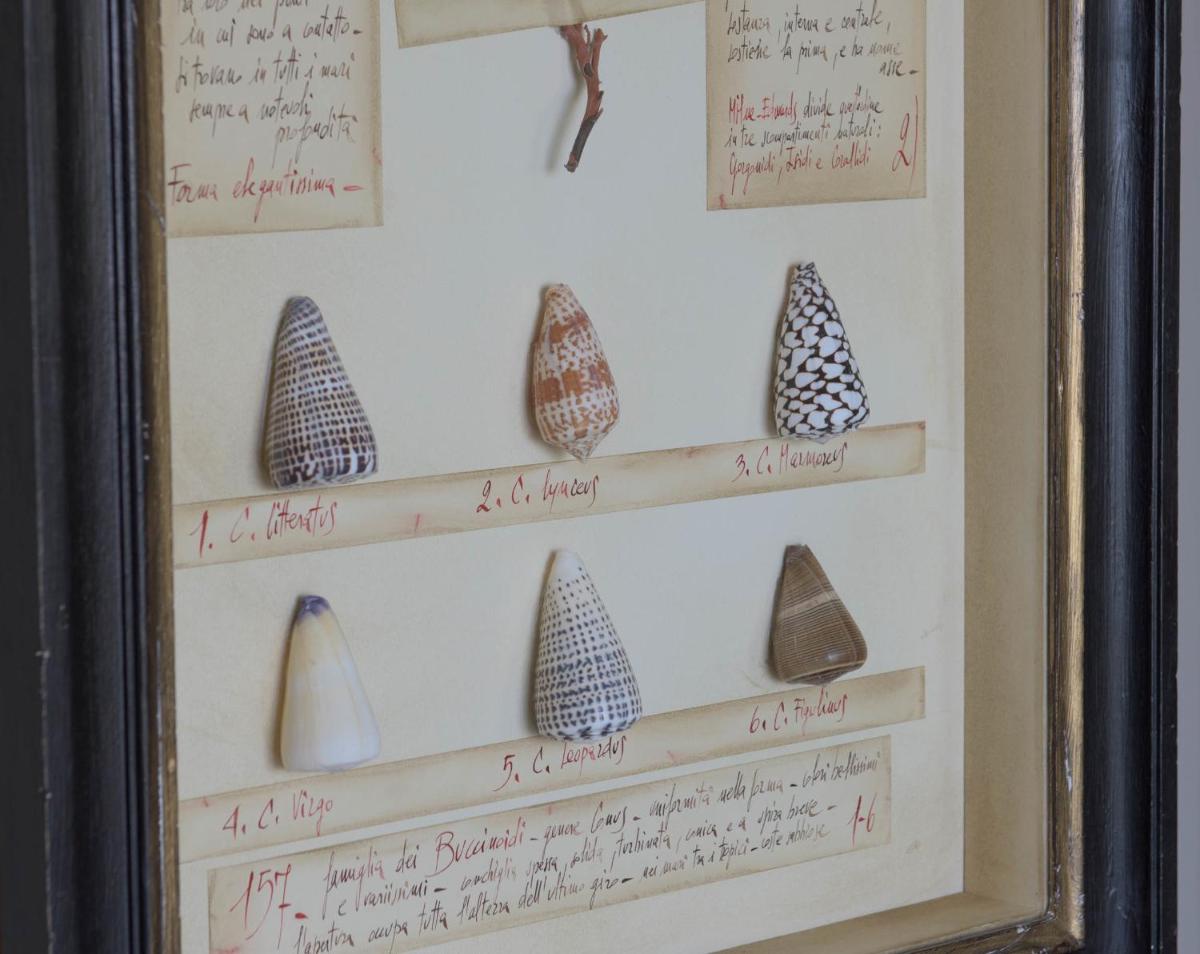 in cui sono a contatto-
si trovano in tutti i mari
sempre a notevoli
profondità
Forma elegantissima-
sostanza, interna e centrale,
costiche la prima, e ha nome
asse-
Milne-Edwards divide quest'ordine
in tre scompartimenti naturali:
Gorgonidi, Isidi e Corallidi
2)
1. C. litteratus
2. C. lynceus
3. C. Marmoreus
4. C. Virgo
5. C. leopardus
6. C. Figulinus
157- famiglia dei Buccinoidi - genere Conus - uniformità nella forma - colori bellissimi
e variissimi - conchiglia spessa, solida, turbinata, conica, e a spira breve -
l'apertura occupa tutta l'altezza dell'ultimo giro - nei mari tra i tropici - coste sabbiose
1-6